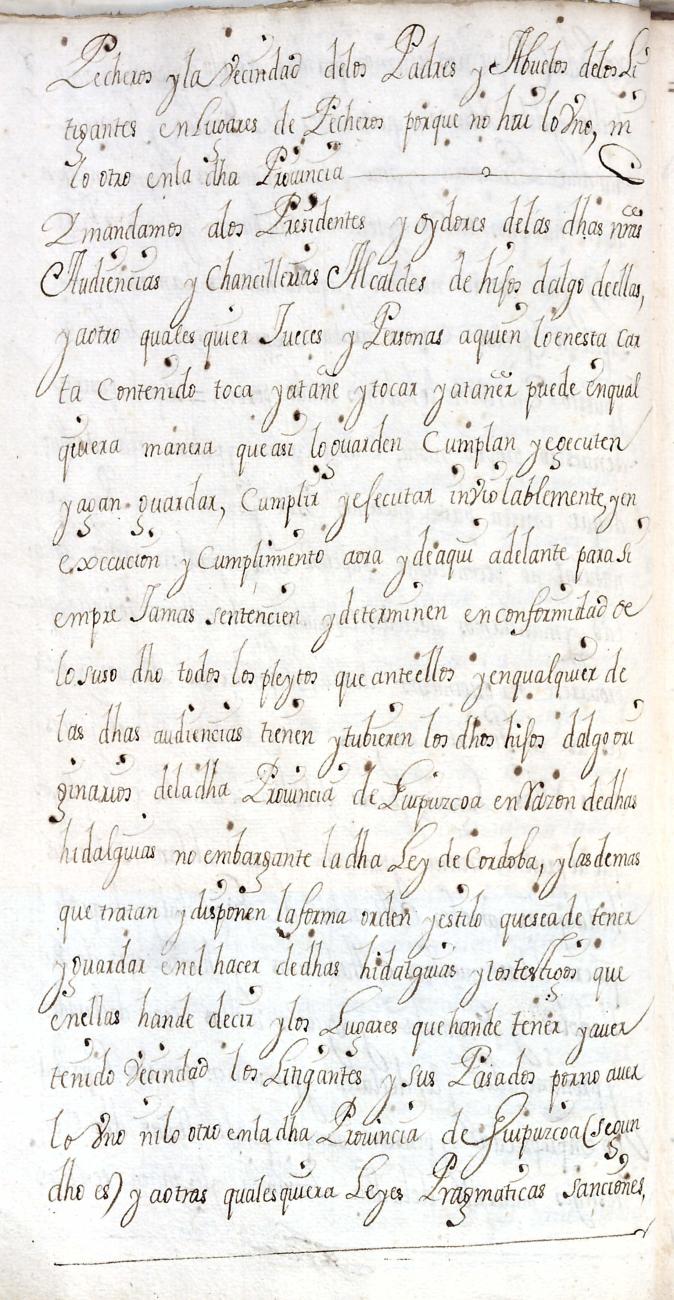 Pecheros y la Vecindad delos Padres y Abuelos delos Li
tigantes en Lugares de Pecheros porque no hau lo Vno, ni
lo otro enla dha Prouincia
Y mandamos alos Presidentes y oydores delas dhas nras
Audiencias y Chancillerias Alcaldes de hijos dalgo deellas,
y aotro qualesquier Jueces y Personas aquien lo enesta Car
ta Contenido toca yatañe ytocar yatañer puede enqual
quiera manera queasi lo guarden Cumplan yegecuten
yagan guardar, Cumplir yefecutar inviolablemente, yen
execucion y Cumplimento aora ydeaqui adelante para si
empre Jamas sentencien ydeterminen enconformidad de
lo suso dho todos los pleytos que anteellos yenqualquier de
las dhas audiencias tienen ytubieren los dhos hijos dalgo ori
ginarios dela dha Prouincia de Guipuzcoa en Razon dedhas
hidalguias no embargante la dha Ley de Cordoba, ylasdemas
que tratan ydisponen la forma orden yestilo quesea de tener
yguardar enel hacer dedhas hidalguias ylostestigos que
enellas hande decir ylos Lugares quehande tener yauer
tenido Vecindad los Litigantes y sus Pasados porno auer
lo Vno nilo otro enla dha Prouincia de Guipuzcoa (segun
dho es) y aotras qualesquiera Leyes Pragmaticas sanciones,